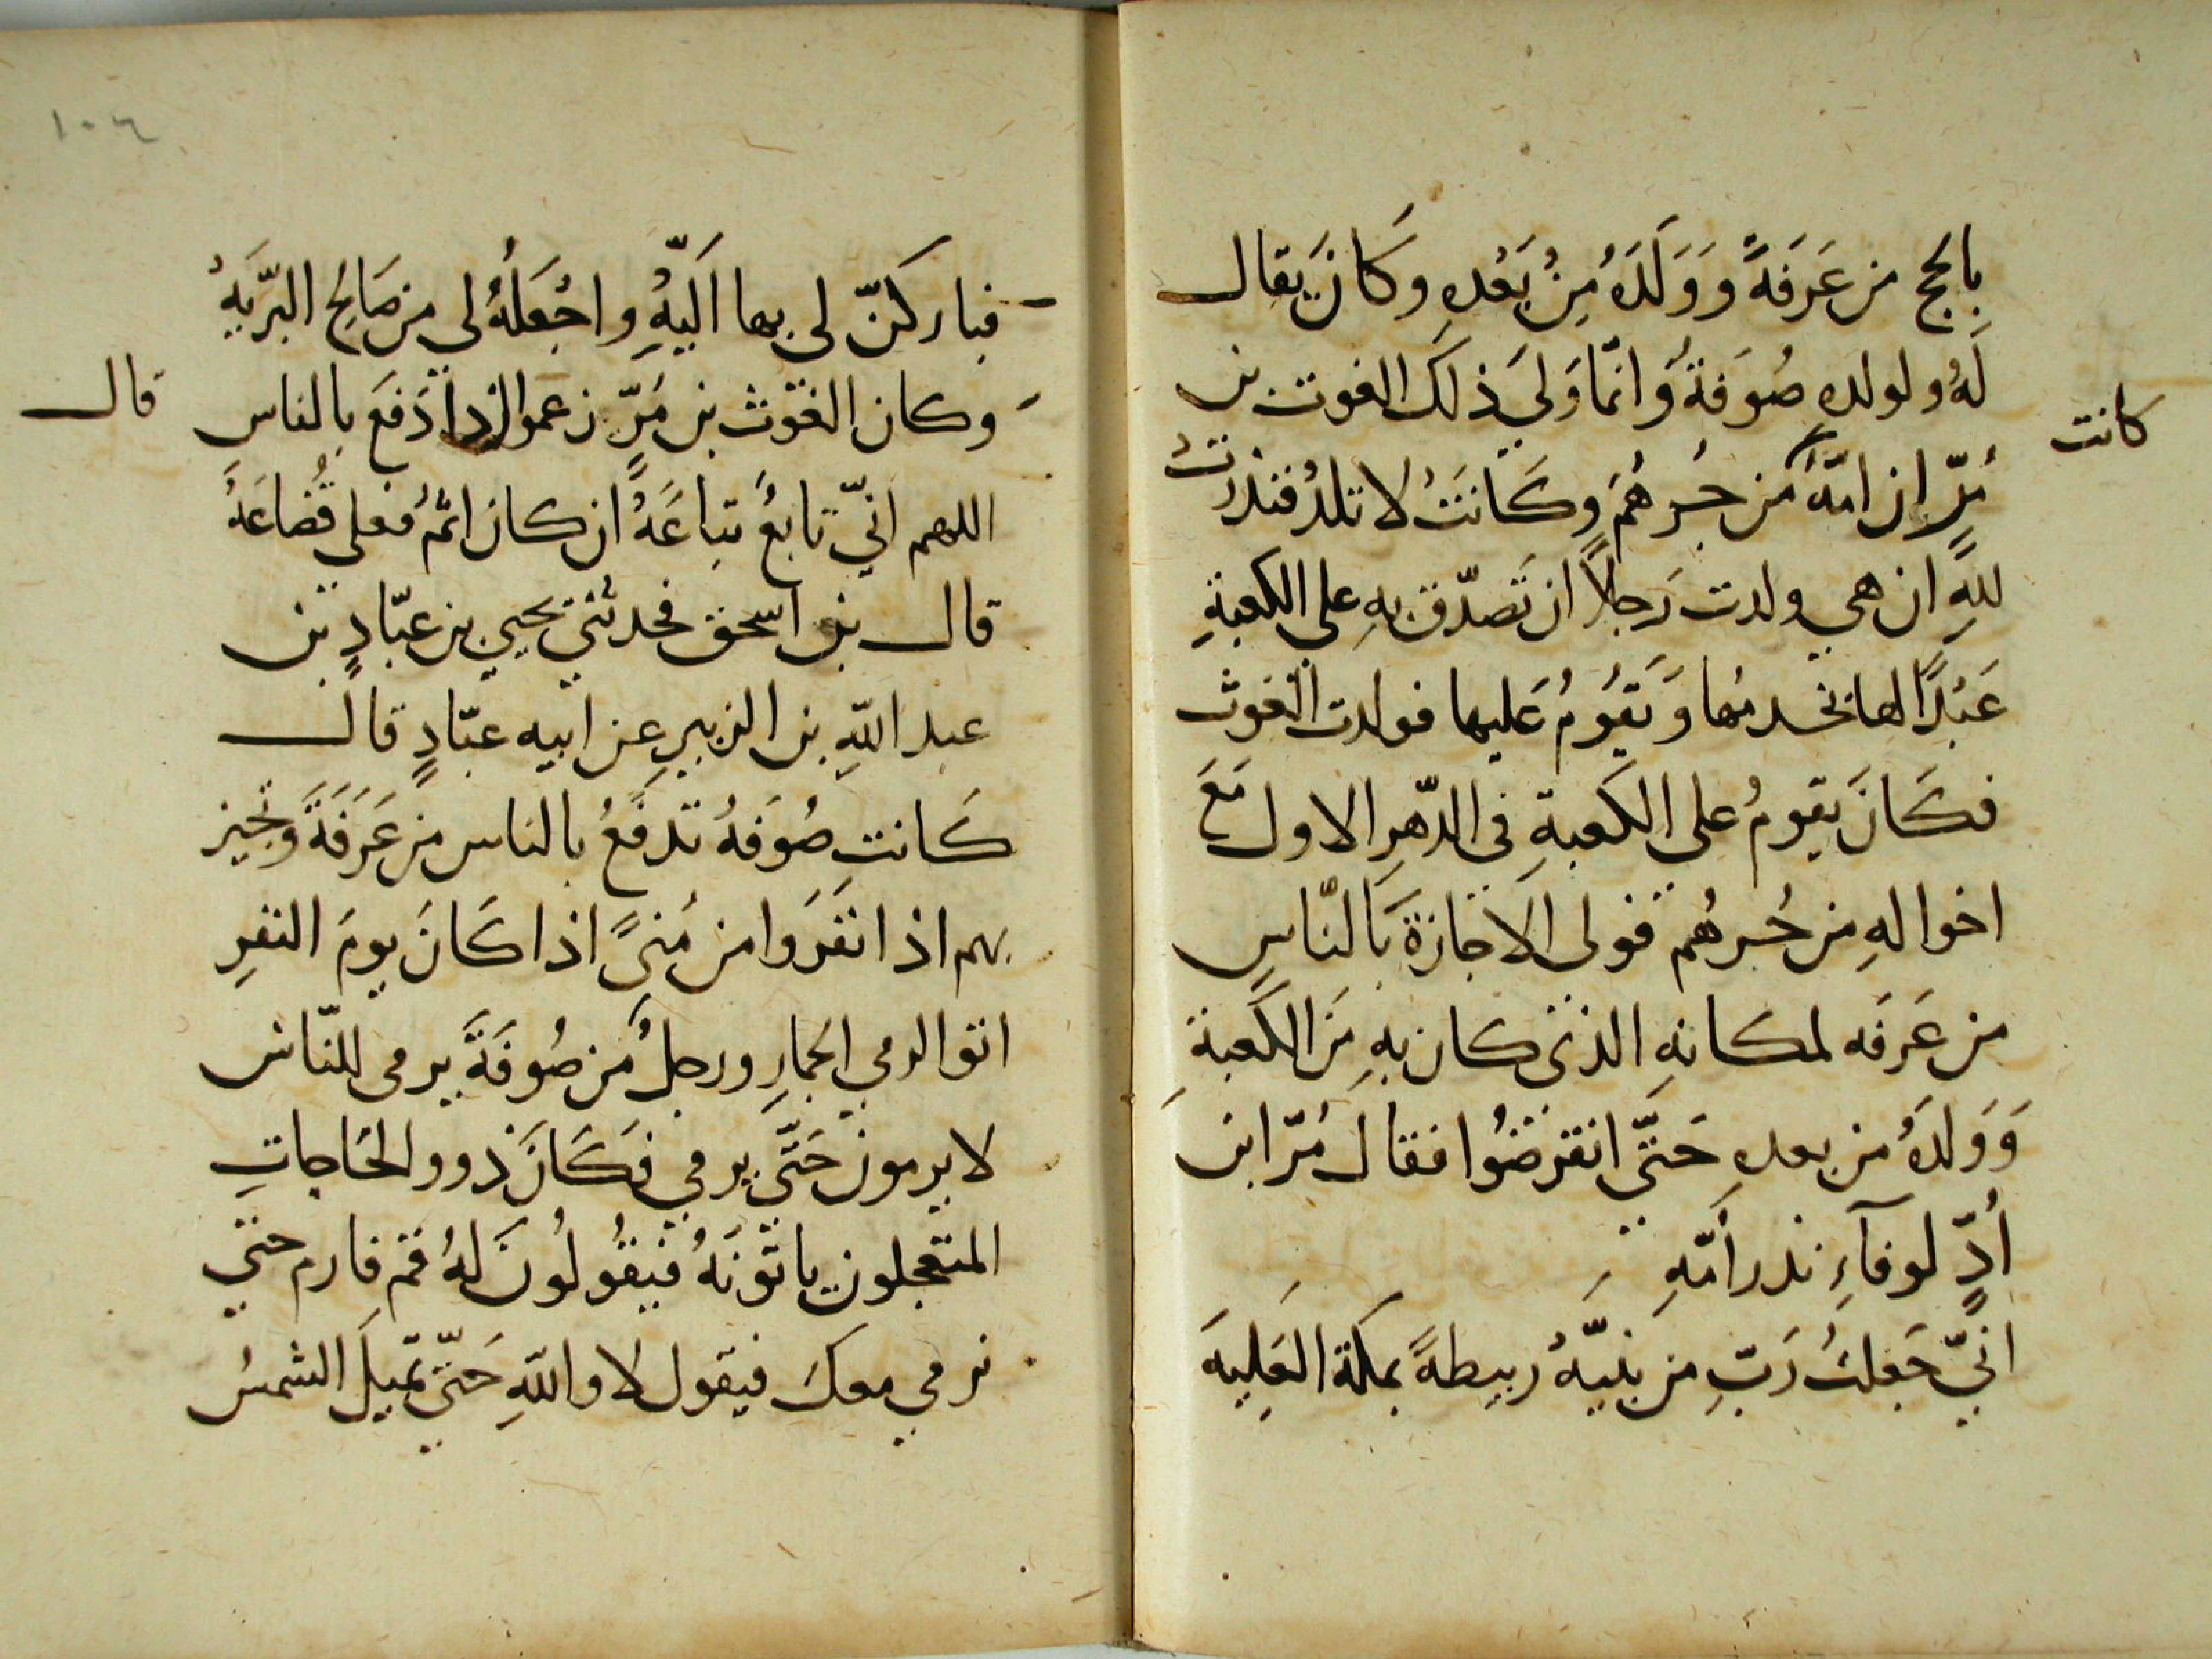 بالحج من عَرَفَةَ وَوَلَدَهُ مِنْ بَعْدِهِ وَكَانَ يقال
لَهُ ولولده صُوَفةُ وَانمّا وَليَ ذلكَ الغوث بن
مُرٍّ ان امّهُ من جُرهُمَ وكَانَتْ لا تلدُ فنذرَتْ
كانت
للهِ ان هي ولدت رَجلاً ان تَصدّق بهِ على الكعبةِ
عَبْدًا لها يخدمُها وَيَقوُمُ عَليها فولدت الغوث
فكَانَ يقومُ على الكَعبةِ في الدّهرِ الاول مَعَ
اخوالهِ من جُرهُم فولي الاجازةَ بَالنّاسِ
من عَرَفَه لمكانهِ الذي كان بهِ مَن الكعبةِ
وَوَلدَهُ من بعدهِ حَتّى انقرضُوا فقال مُرّ ابن
أُدٍّ لوفآءِ نذر أمّهِ
انيّ جَعلتُ رَبِّ من بَنيَّهْ ربيطةً بمكة العَلِيهَ
فباركنّ لي بها اَليّهْ واجْعَلْهُ لي من صَالحِ البرَّيهْ
وكان الغوث بن مَرٍّ زعموا اذا دَفعَ بالناس
قال
اللهم انيّ تابعُ تباعَهْ ان كان اثمُ فعلى قُضاعَهْ
قال بن اسحق فحدثني يحيي بن عبّادٍ بن
عبد اللهِ بن الزبيرِ عن ابيه عبّادٍ قال
كَانت صُوَفهُ تدفَعُ بالناس من عَرَفَةَ وَتجيز
بهم اذا نفَرَوا من مُنىً اذا كَانَ يومَ النفرِ
اتوا لرمي الجمارِ ورجلُ من صُوفَةَ يرمى للنّاس
لا يرمون حَتّى يرمي فكَانَ ذوو الحَاجاتِ
المتعجلون ياتوْنَهُ فيقُولُونَ لهُ قم فارم حتى
نرمي معكَ فيقول لا واللهِ حَتّى تميلَ الشمسُ
١٠٦